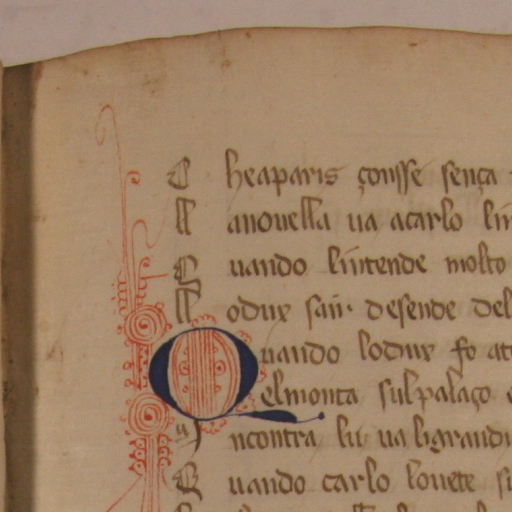 C heaparis çonsse sença
ll anouella ua acarlo
Q uando lintende molto
ll odux san desende del
Quando lodux fo
elmonta sulpalaço
ncontra li ua ligrandi
Q uando carlo louete